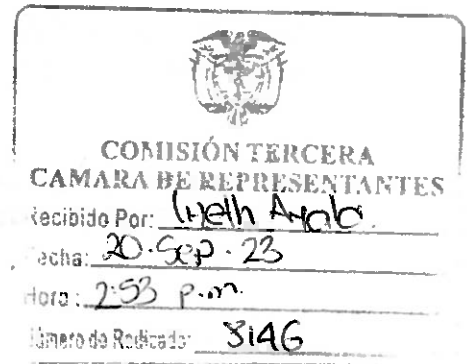 COMISIÓN TERCERA
CAMARA DE REPRESENTANTES
Recibido Por: Ayala.
Fecha: 20-Sep-23
Hora: 2:53 p.m.
Número de Radicado: 8146